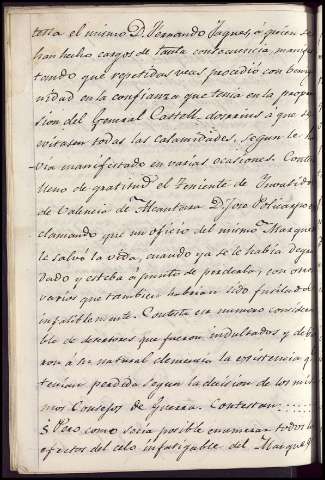 testa el mismo D. Fernando Jaques, á quien se
han hecho cargos de tanta consecuencia, manifes
tando que repetidas veces procedió con benig
nidad en la confianza que tenia en la
sion del General Castell. dosrius á que se
evitasen todas las calamidades, segun le ha
via manifestado en varias ocasiones. Contesta
lleno de gratitud el Teniente de
de Valencia de Alcantara D. Jose Policarpo
clamando que un oficio del mismo Marques
le salvó la vida, cuando ya se le habia degra
dado y estaba á punto de perderla, con otros
varios que tambien habrian sido fusilados
infaliblemente. Contesta un numero considera
ble de desertores que fueron indultados y debie
ron á su natural clemencia la existencia que
tenian perdida segun la decision de los mis
mos Consejos de Guerra. Contestan
Pero cómo seria posible enumerar todos los
efectos del celo infatigable del Marques